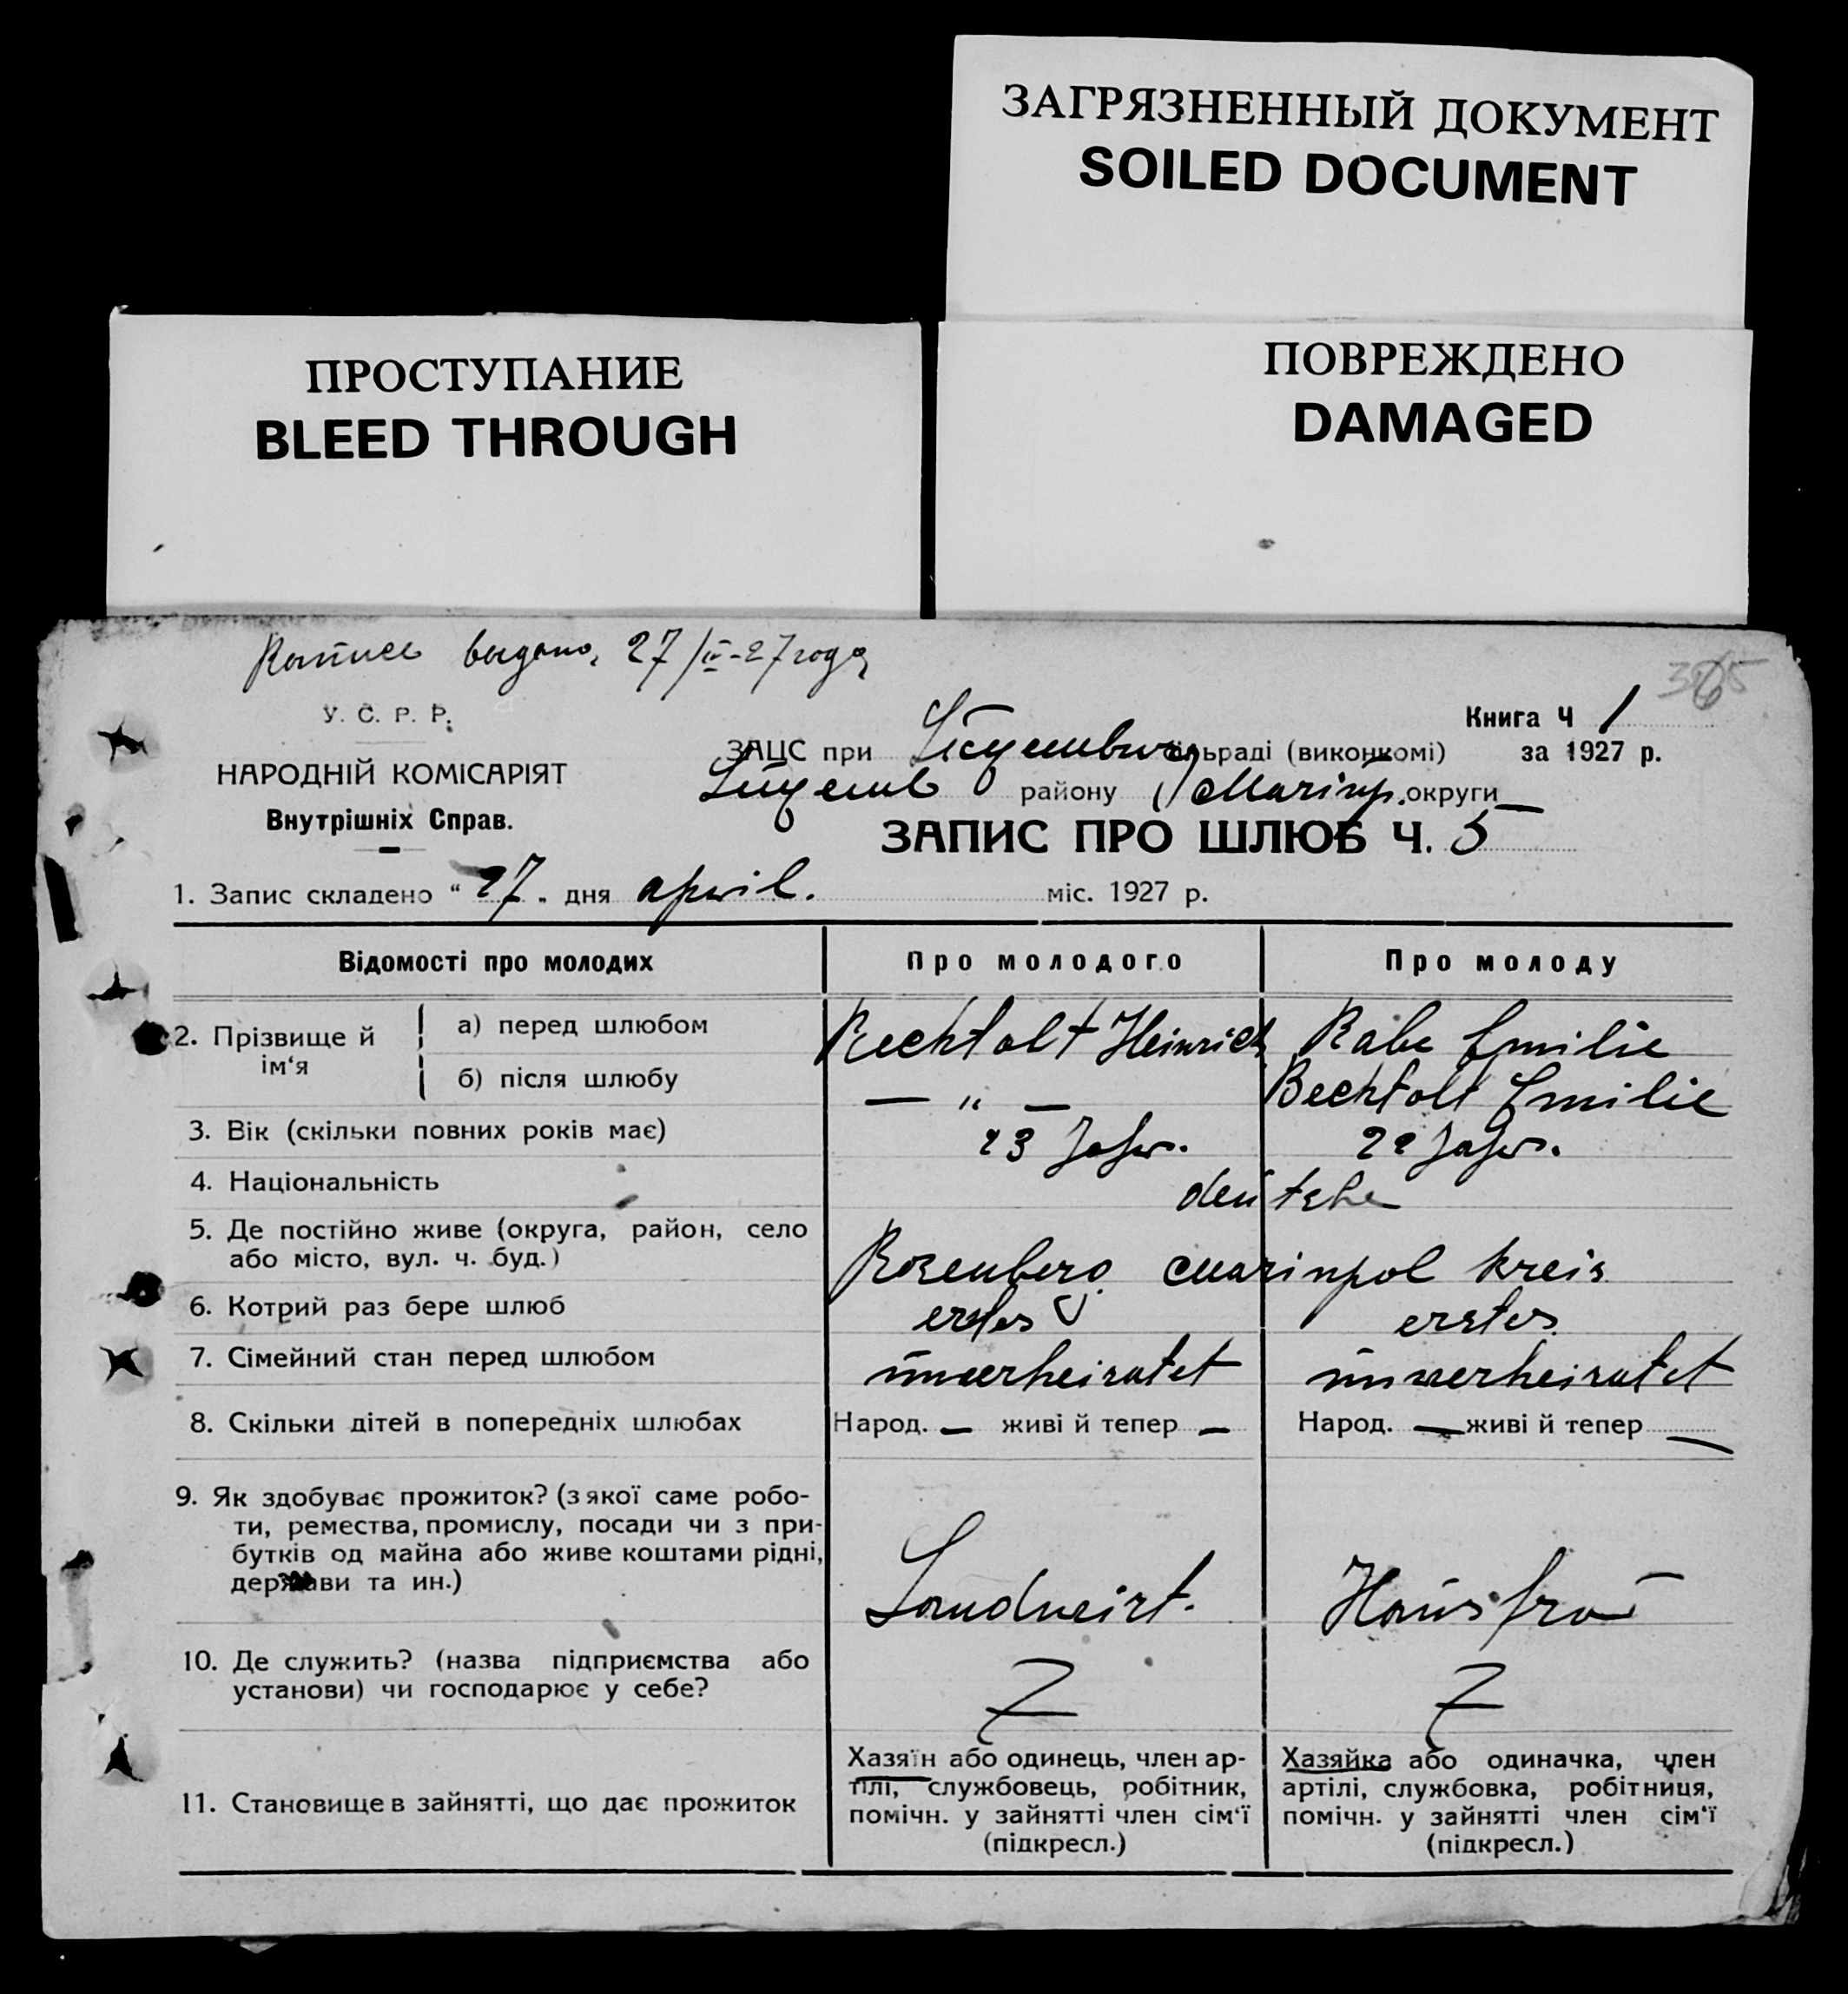 ЗАГРЯЗНЕННЫЙ ДОКУМЕНТ
SOILED DOCUMENT
ПРОСТУПАНИЕ
BLEED THROUGH
ПОВРЕЖДЕНО
DAMAGED
выдано, 27/IV-27 года
У. С. Р. Р.
НАРОДНІЙ КОМІСАРІЯТ
Внутрішніх Справ.
Книга Ч 1
ЗАЦС при сільраді (виконкомі) за 1927 р.
району Маріуп. округи
ЗАПИС ПРО ШЛЮБ Ч. 5
1. Запис складено " 27 " дня april. міс. 1927 р.
Відомості про молодих Про молодого Про молоду
2. Прізвище й ім'я
а) перед шлюбом Bechtolt Heinrich Rabe Emilie
б) після шлюбу — " — Bechtolt Emilie
3. Вік (скільки повних років має) 23 Jahr. 22 Jahr.
4. Національність deutsche
5. Де постійно живе (округа, район, село
або місто, вул. ч. буд.) Rosenberg mariupol Kreis
6. Котрий раз бере шлюб erstes erstes
7. Сімейний стан перед шлюбом unverheiratet unverheiratet
8. Скільки дітей в попередніх шлюбах Народ. — живі й тепер — Народ. — живі й тепер —
9. Як здобуває прожиток? (з якої саме робо-
ти, ремества, промислу, посади чи з при-
бутків од майна або живе коштами рідні,
держави та ин.) Landwirt. Hausfrau
10. Де служить? (назва підприємства або
установи) чи господарює у себе?
11. Становище в зайнятті, що дає прожиток
Хазяїн або одинець, член ар-
тілі, службовець, робітник,
помічн. у зайнятті член сім'ї
(підкресл.)
Хазяйка або одиначка, член
артілі, службовка, робітниця,
помічн. у зайнятті член сім'ї
(підкресл.)